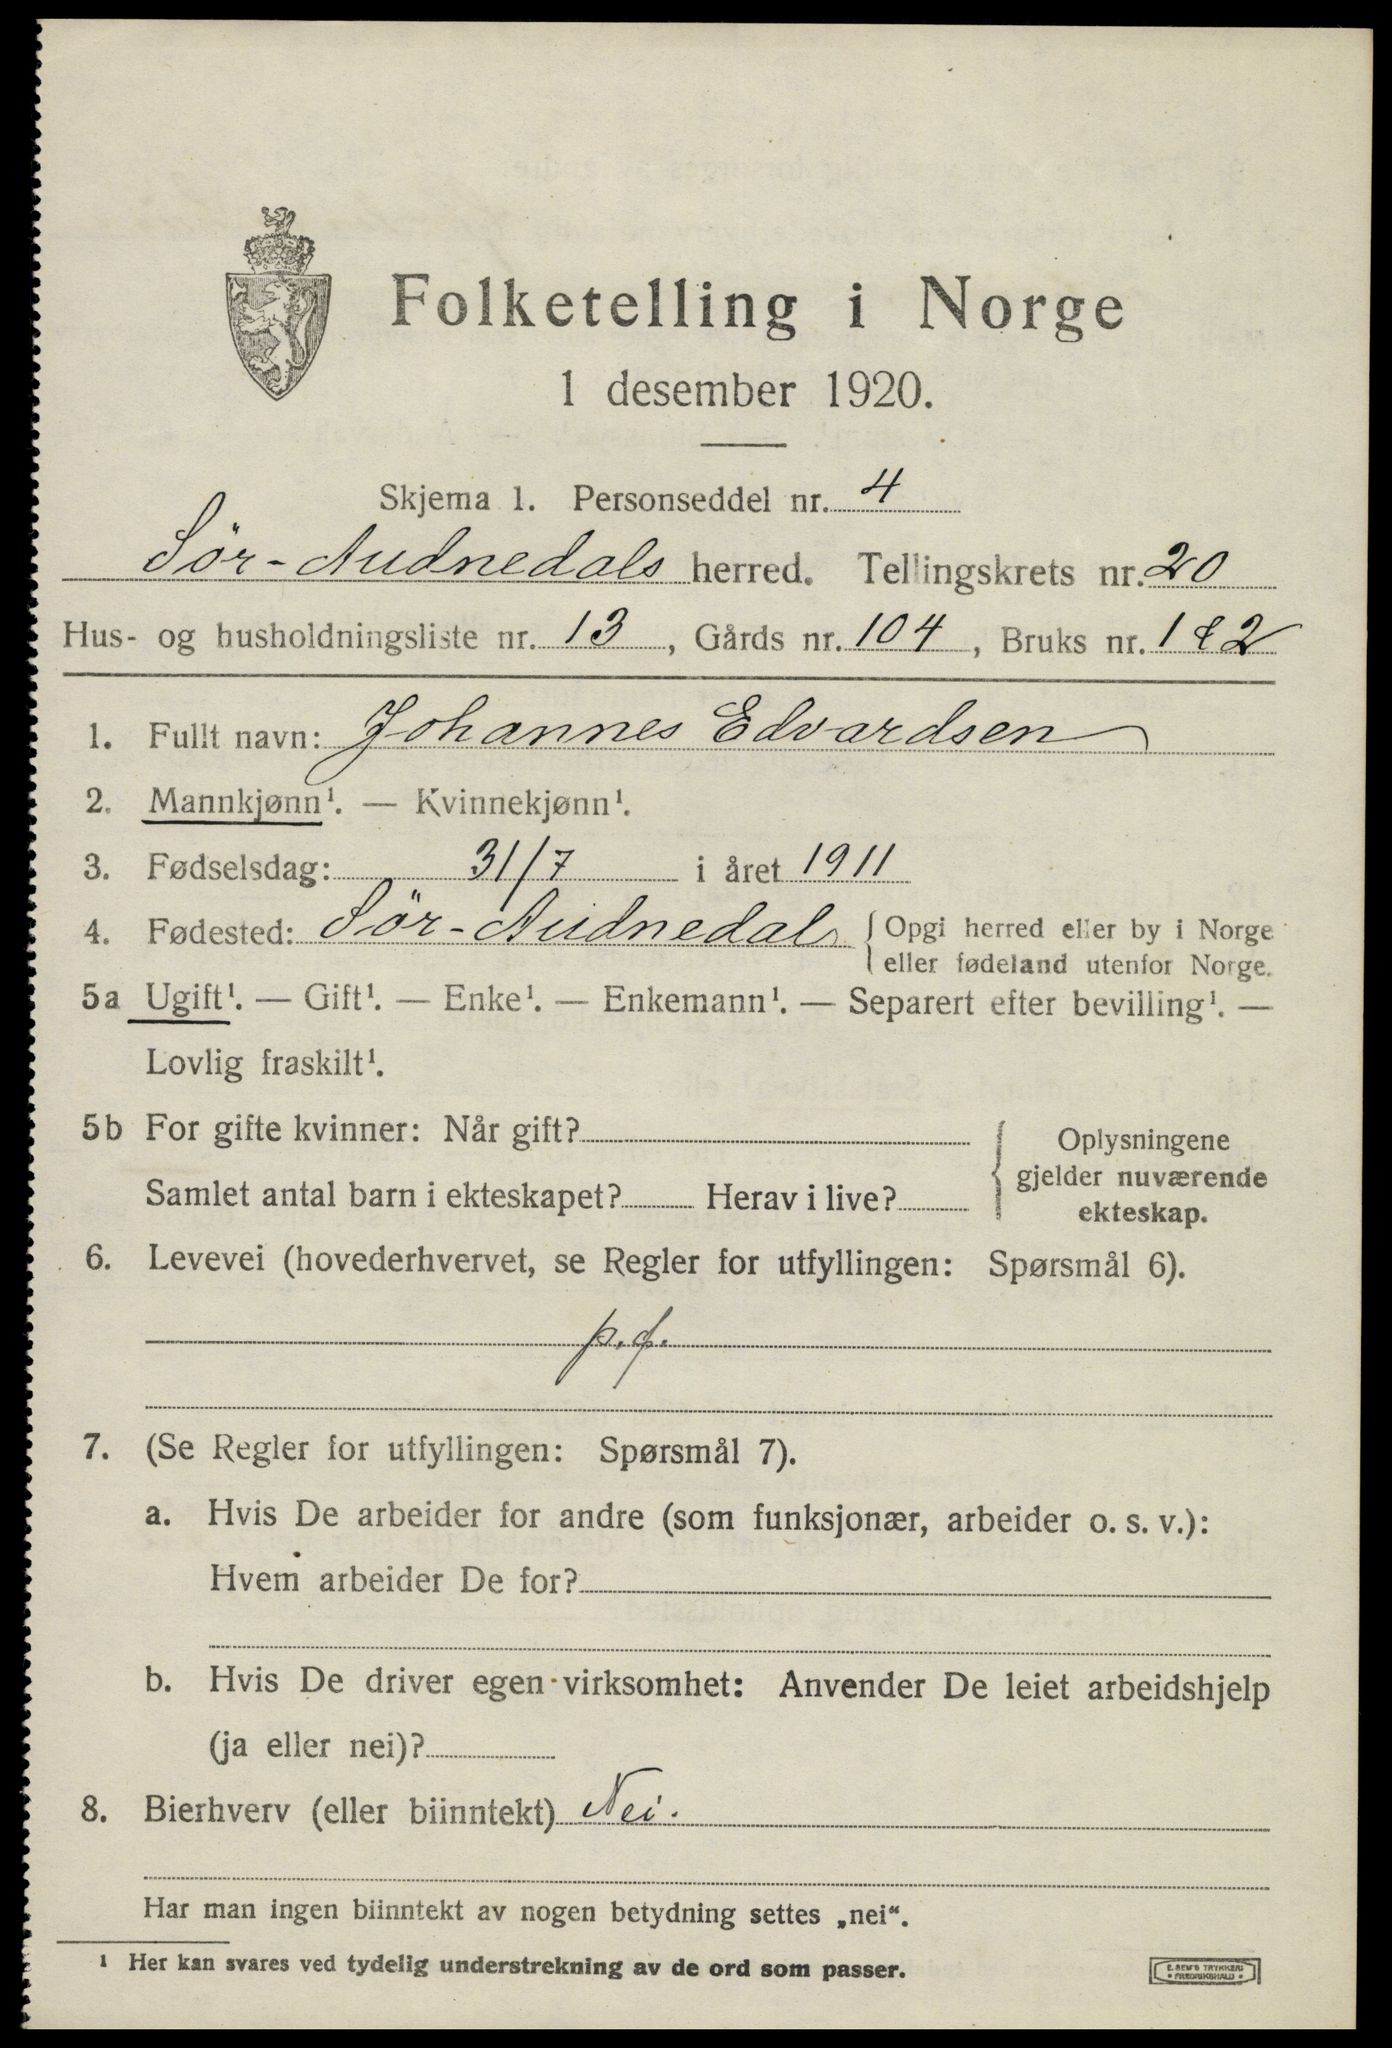 Folketelling i Norge
1 desember 1920.
Skjema 1. Personseddel nr. 4
Sör-Audnedals herred. Tellingskrets nr. 20
Hus- og husholdningsliste nr. 13, Gårds nr. 104, Bruks nr. 1 & 2
1. Fullt navn: Johannes Edvardsen
2. Mannkjønn¹. — Kvinnekjønn¹.
3. Fødselsdag: 31/7 i året 1911
4. Fødested: Sör-Audnedal { Opgi herred eller by i Norge
eller fødeland utenfor Norge.
5a Ugift¹. — Gift¹. — Enke¹. — Enkemann¹. — Separert efter bevilling¹. —
Lovlig fraskilt¹.
5b For gifte kvinner: Når gift?
Samlet antal barn i ekteskapet? Herav i live?
Oplysningene
gjelder nuværende
ekteskap.
6. Levevei (hovederhvervet, se Regler for utfyllingen: Spørsmål 6).
p. f.
7. (Se Regler for utfyllingen: Spørsmål 7).
a. Hvis De arbeider for andre (som funksjonær, arbeider o. s. v.):
Hvem arbeider De for?
b. Hvis De driver egen virksomhet: Anvender De leiet arbeidshjelp
(ja eller nei)?
8. Bierhverv (eller biinntekt) Nei.
Har man ingen biinntekt av nogen betydning settes „nei“.
¹ Her kan svares ved tydelig understrekning av de ord som passer.
E. SEM'S TRYKKERI
FREDRIKSHALD